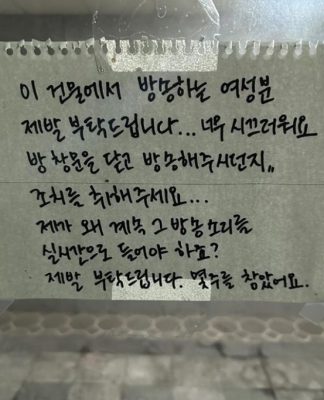 이 건물에서 방송하는 여성분
제발 부탁드립니다... 너무 시끄러워요
방 창문을 닫고 방송해주시던지,,
조치를 취해주세요...
제가 왜 계속 그 방송소리를
실시간으로 들어야 하죠?
제발 부탁드립니다. 몇주를 참았어요.